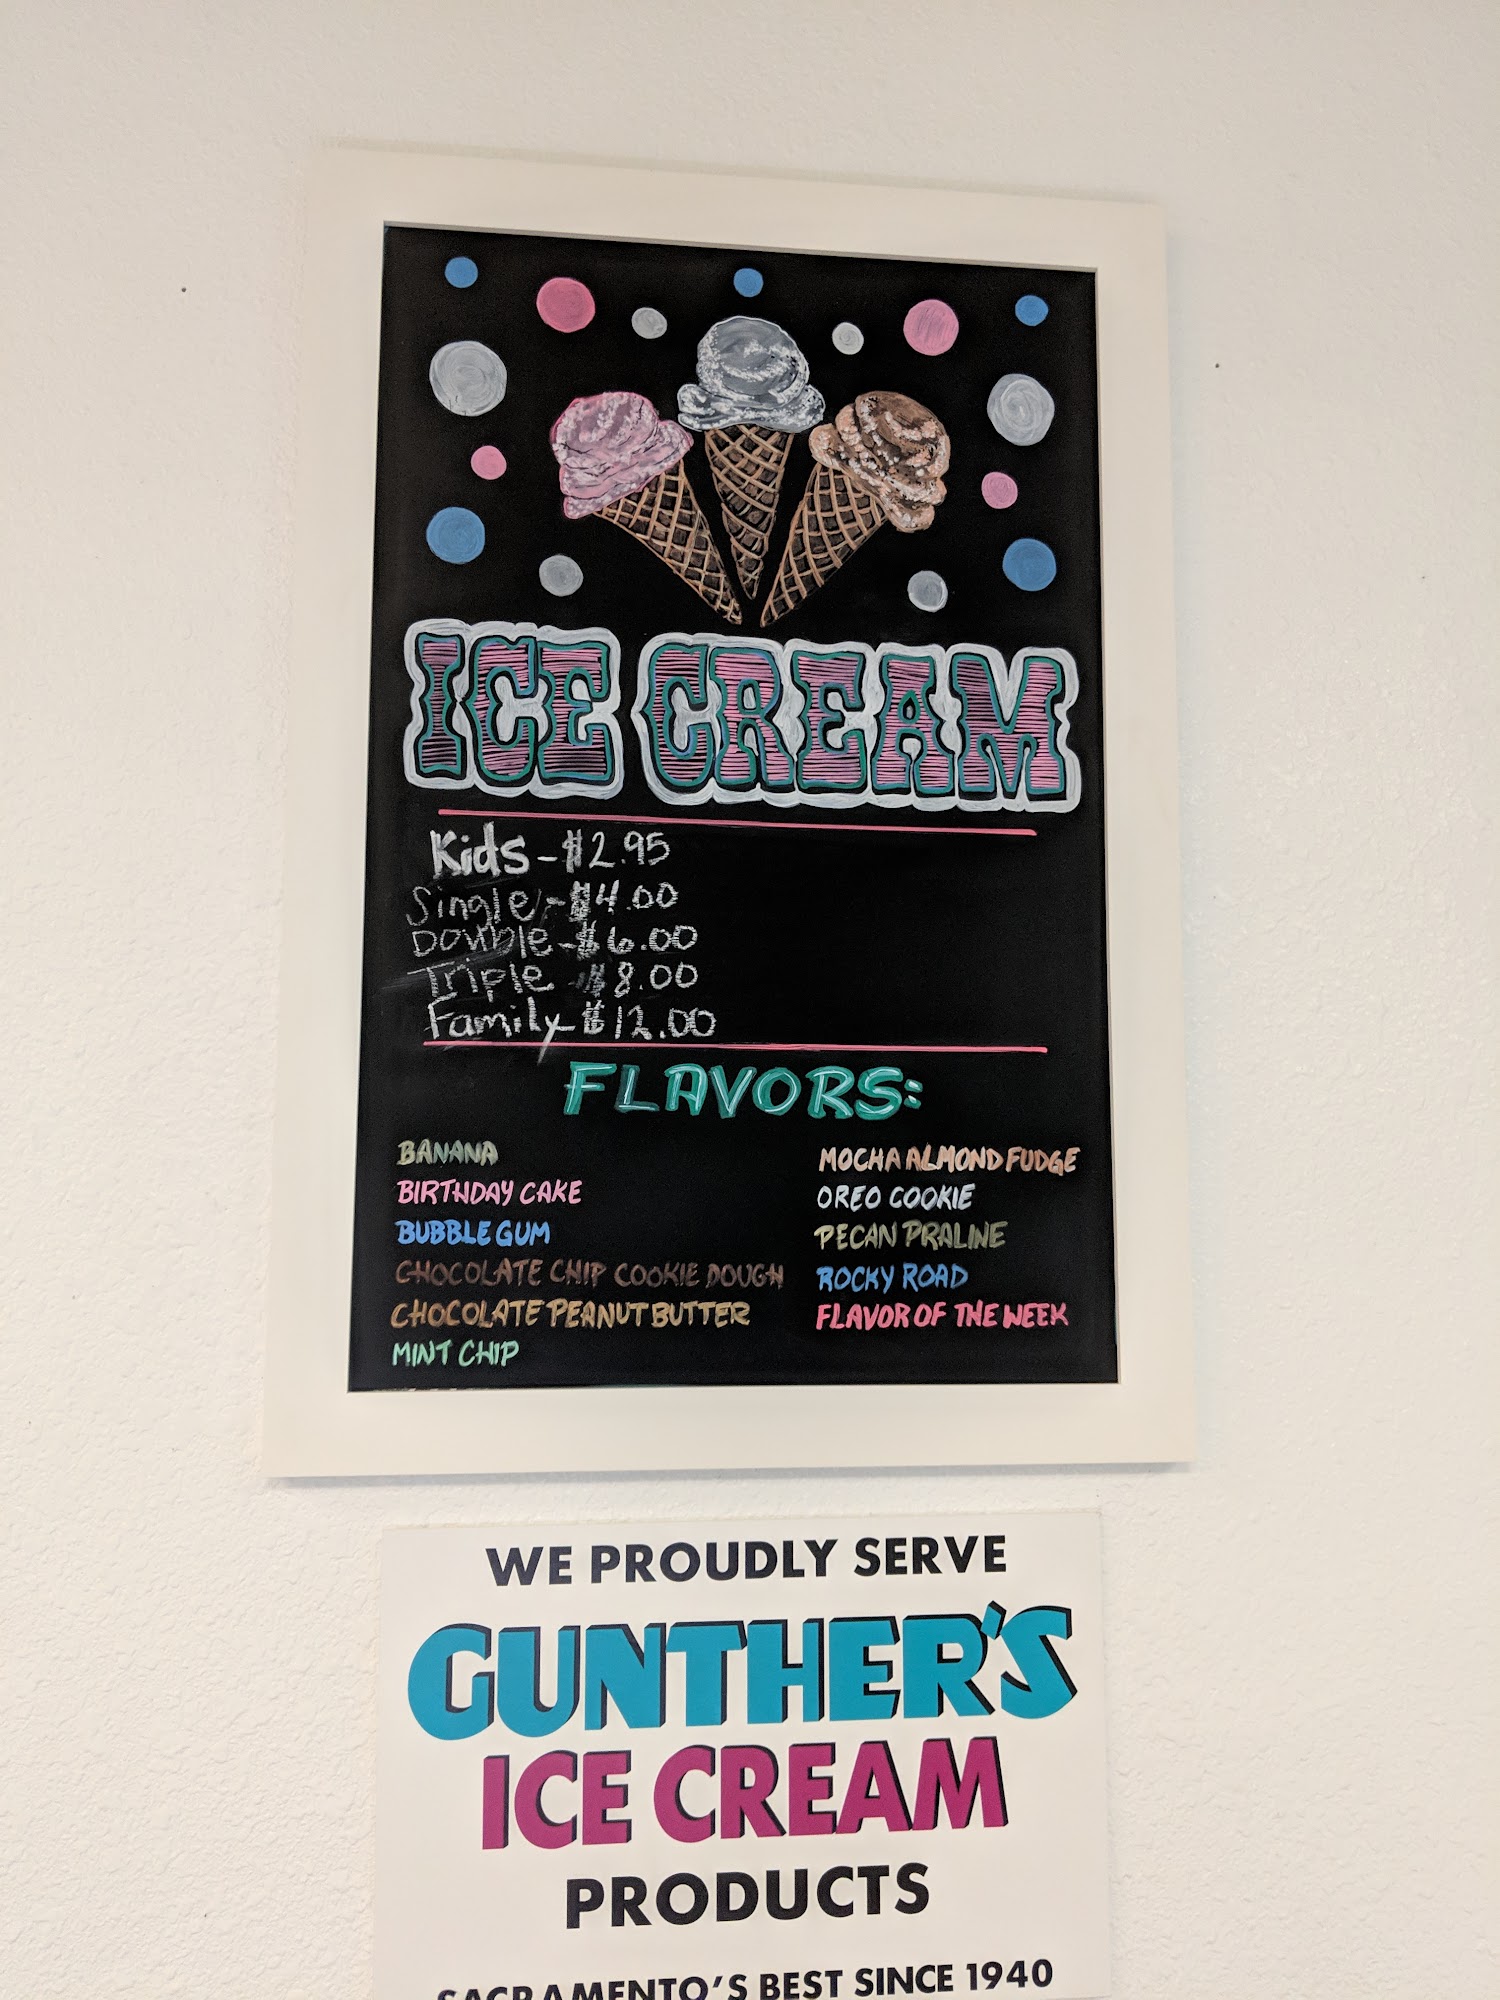 ICE CREAM
Kids - $2.95
Single - $4.00
Double - $6.00
Triple $8.00
Family - $12.00
FLAVORS:
BANANA
BIRTHDAY CAKE
BUBBLE GUM
CHOCOLATE CHIP COOKIE DOUGH
CHOCOLATE PEANUT BUTTER
MINT CHIP
MOCHA ALMOND FUDGE
OREO COOKIE
PECAN PRALINE
ROCKY ROAD
FLAVOR OF THE WEEK
WE PROUDLY SERVE
GUNTHER'S
ICE CREAM
PRODUCTS
SACRAMENTO'S BEST SINCE 1940